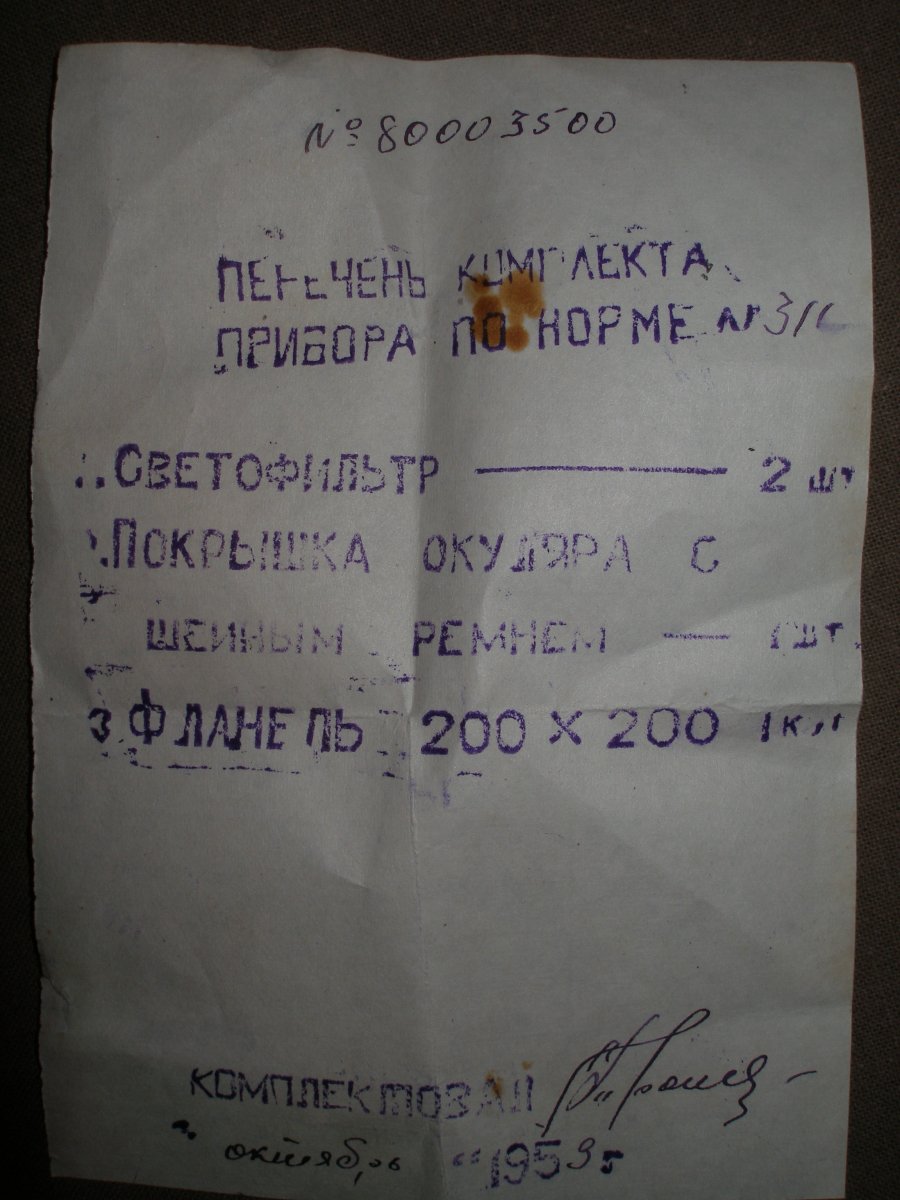 № 80003500
ПЕРЕЧЕНЬ КОМПЛЕКТА
ПРИБОРА ПО НОРМЕ №
1. СВЕТОФИЛЬТР — 2 шт
2. ПОКРЫШКА ОКУЛЯРА С
ШЕЙНЫМ РЕМНЕМ — 1 шт.
3 ФЛАНЕЛЬ 200 × 200 1
КОМПЛЕКТОВАЛ
" октябрь " 1959 г